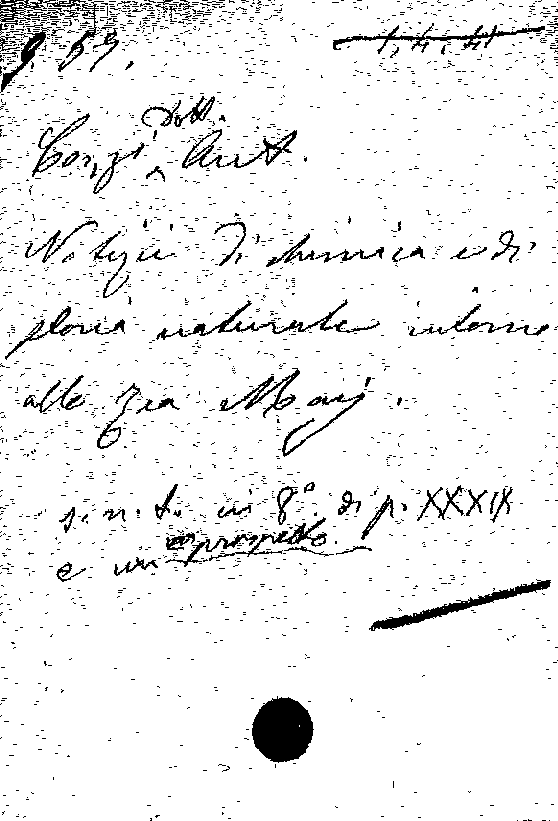 9. 59. 1. 4. 41
Dott.
Conzi Ant.
Notizie di chimica e di
storia naturale intorno
alla Zea Mays.
s. n. t. in 8° di p. XXXIX
e un prospetto.